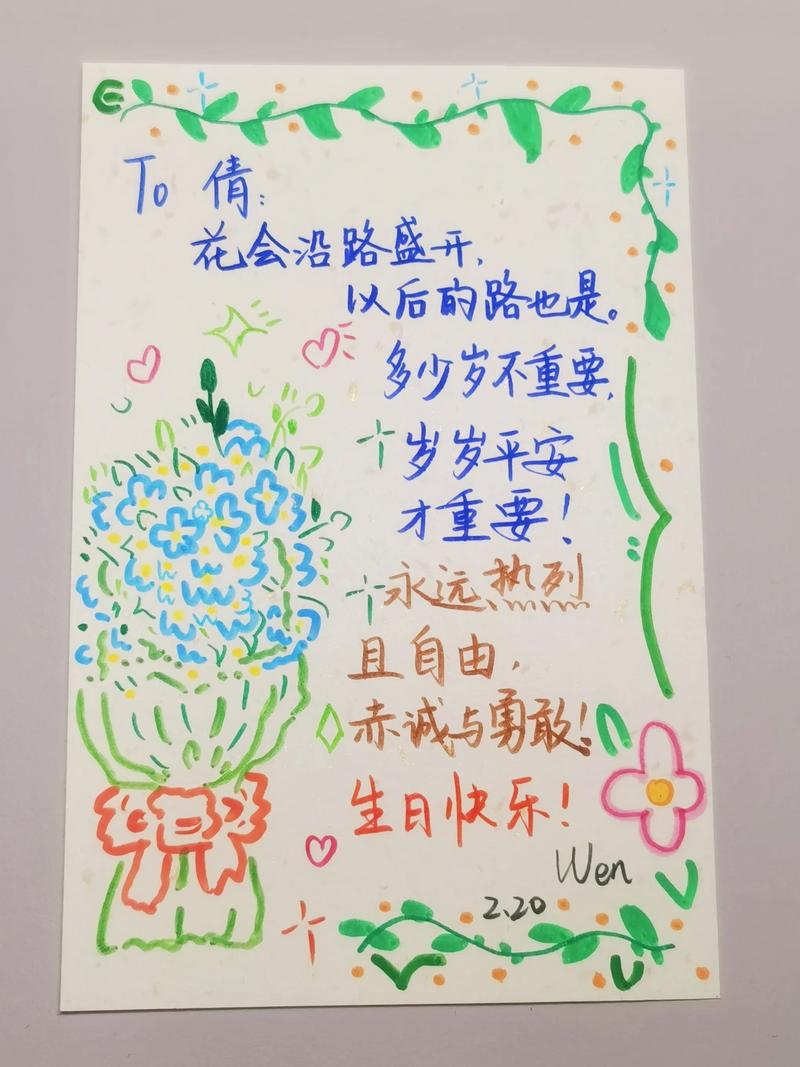 To 倩:
花会沿路盛开,
以后的路也是。
多少岁不重要,
岁岁平安
才重要!
永远热列
且自由,
赤诚与勇敢!
生日快乐!
Wen
2.20